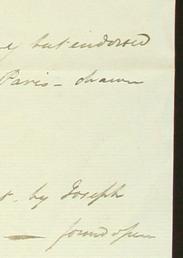 but endorsed
Paris - drawn
by Joseph
— found open